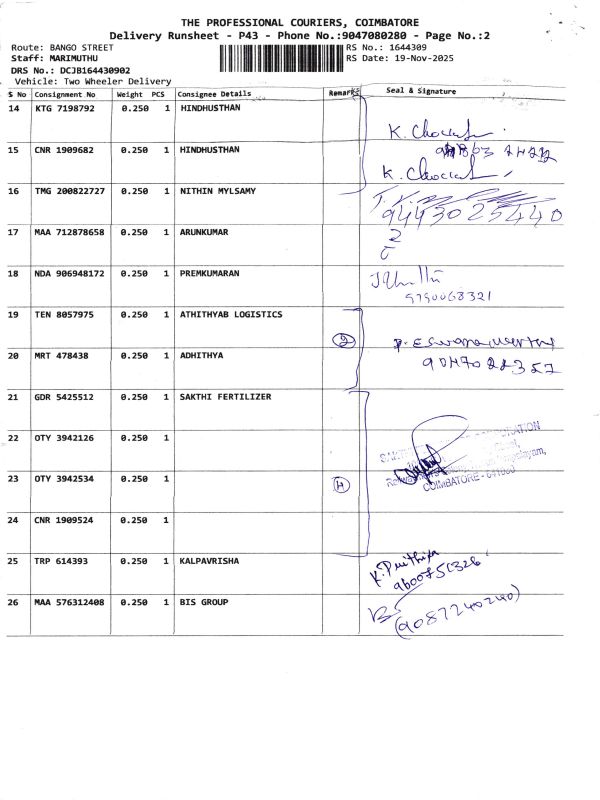 THE PROFESSIONAL COURIERS, COIMBATORE
Delivery Runsheet - P43 - Phone No.:9047080280 - Page No.:2
Route: BANGO STREET
RS No.: 1644309
Staff: MARIMUTHU
RS Date: 19-Nov-2025
DRS No.: DCJB164430902
Vehicle: Two Wheeler Delivery
S No Consignment No Weight PCS Consignee Details Remarks Seal & Signature
14 KTG 7198792 0.250 1 HINDHUSTHAN
15 CNR 1909682 0.250 1 HINDHUSTHAN
16 TMG 200822727 0.250 1 NITHIN MYLSAMY
9443025440
17 MAA 712878658 0.250 1 ARUNKUMAR
18 NDA 906948172 0.250 1 PREMKUMARAN
9790068321
19 TEN 8057975 0.250 1 ATHITHYAB LOGISTICS
2
20 MRT 478438 0.250 1 ADHITHYA
21 GDR 5425512 0.250 1 SAKTHI FERTILIZER
22 OTY 3942126 0.250 1
23 OTY 3942534 0.250 1
COIMBATORE
24 CNR 1909524 0.250 1
25 TRP 614393 0.250 1 KALPAVRISHA
K. Prithipa
9600751326
26 MAA 576312408 0.250 1 BIS GROUP
(9087240240)